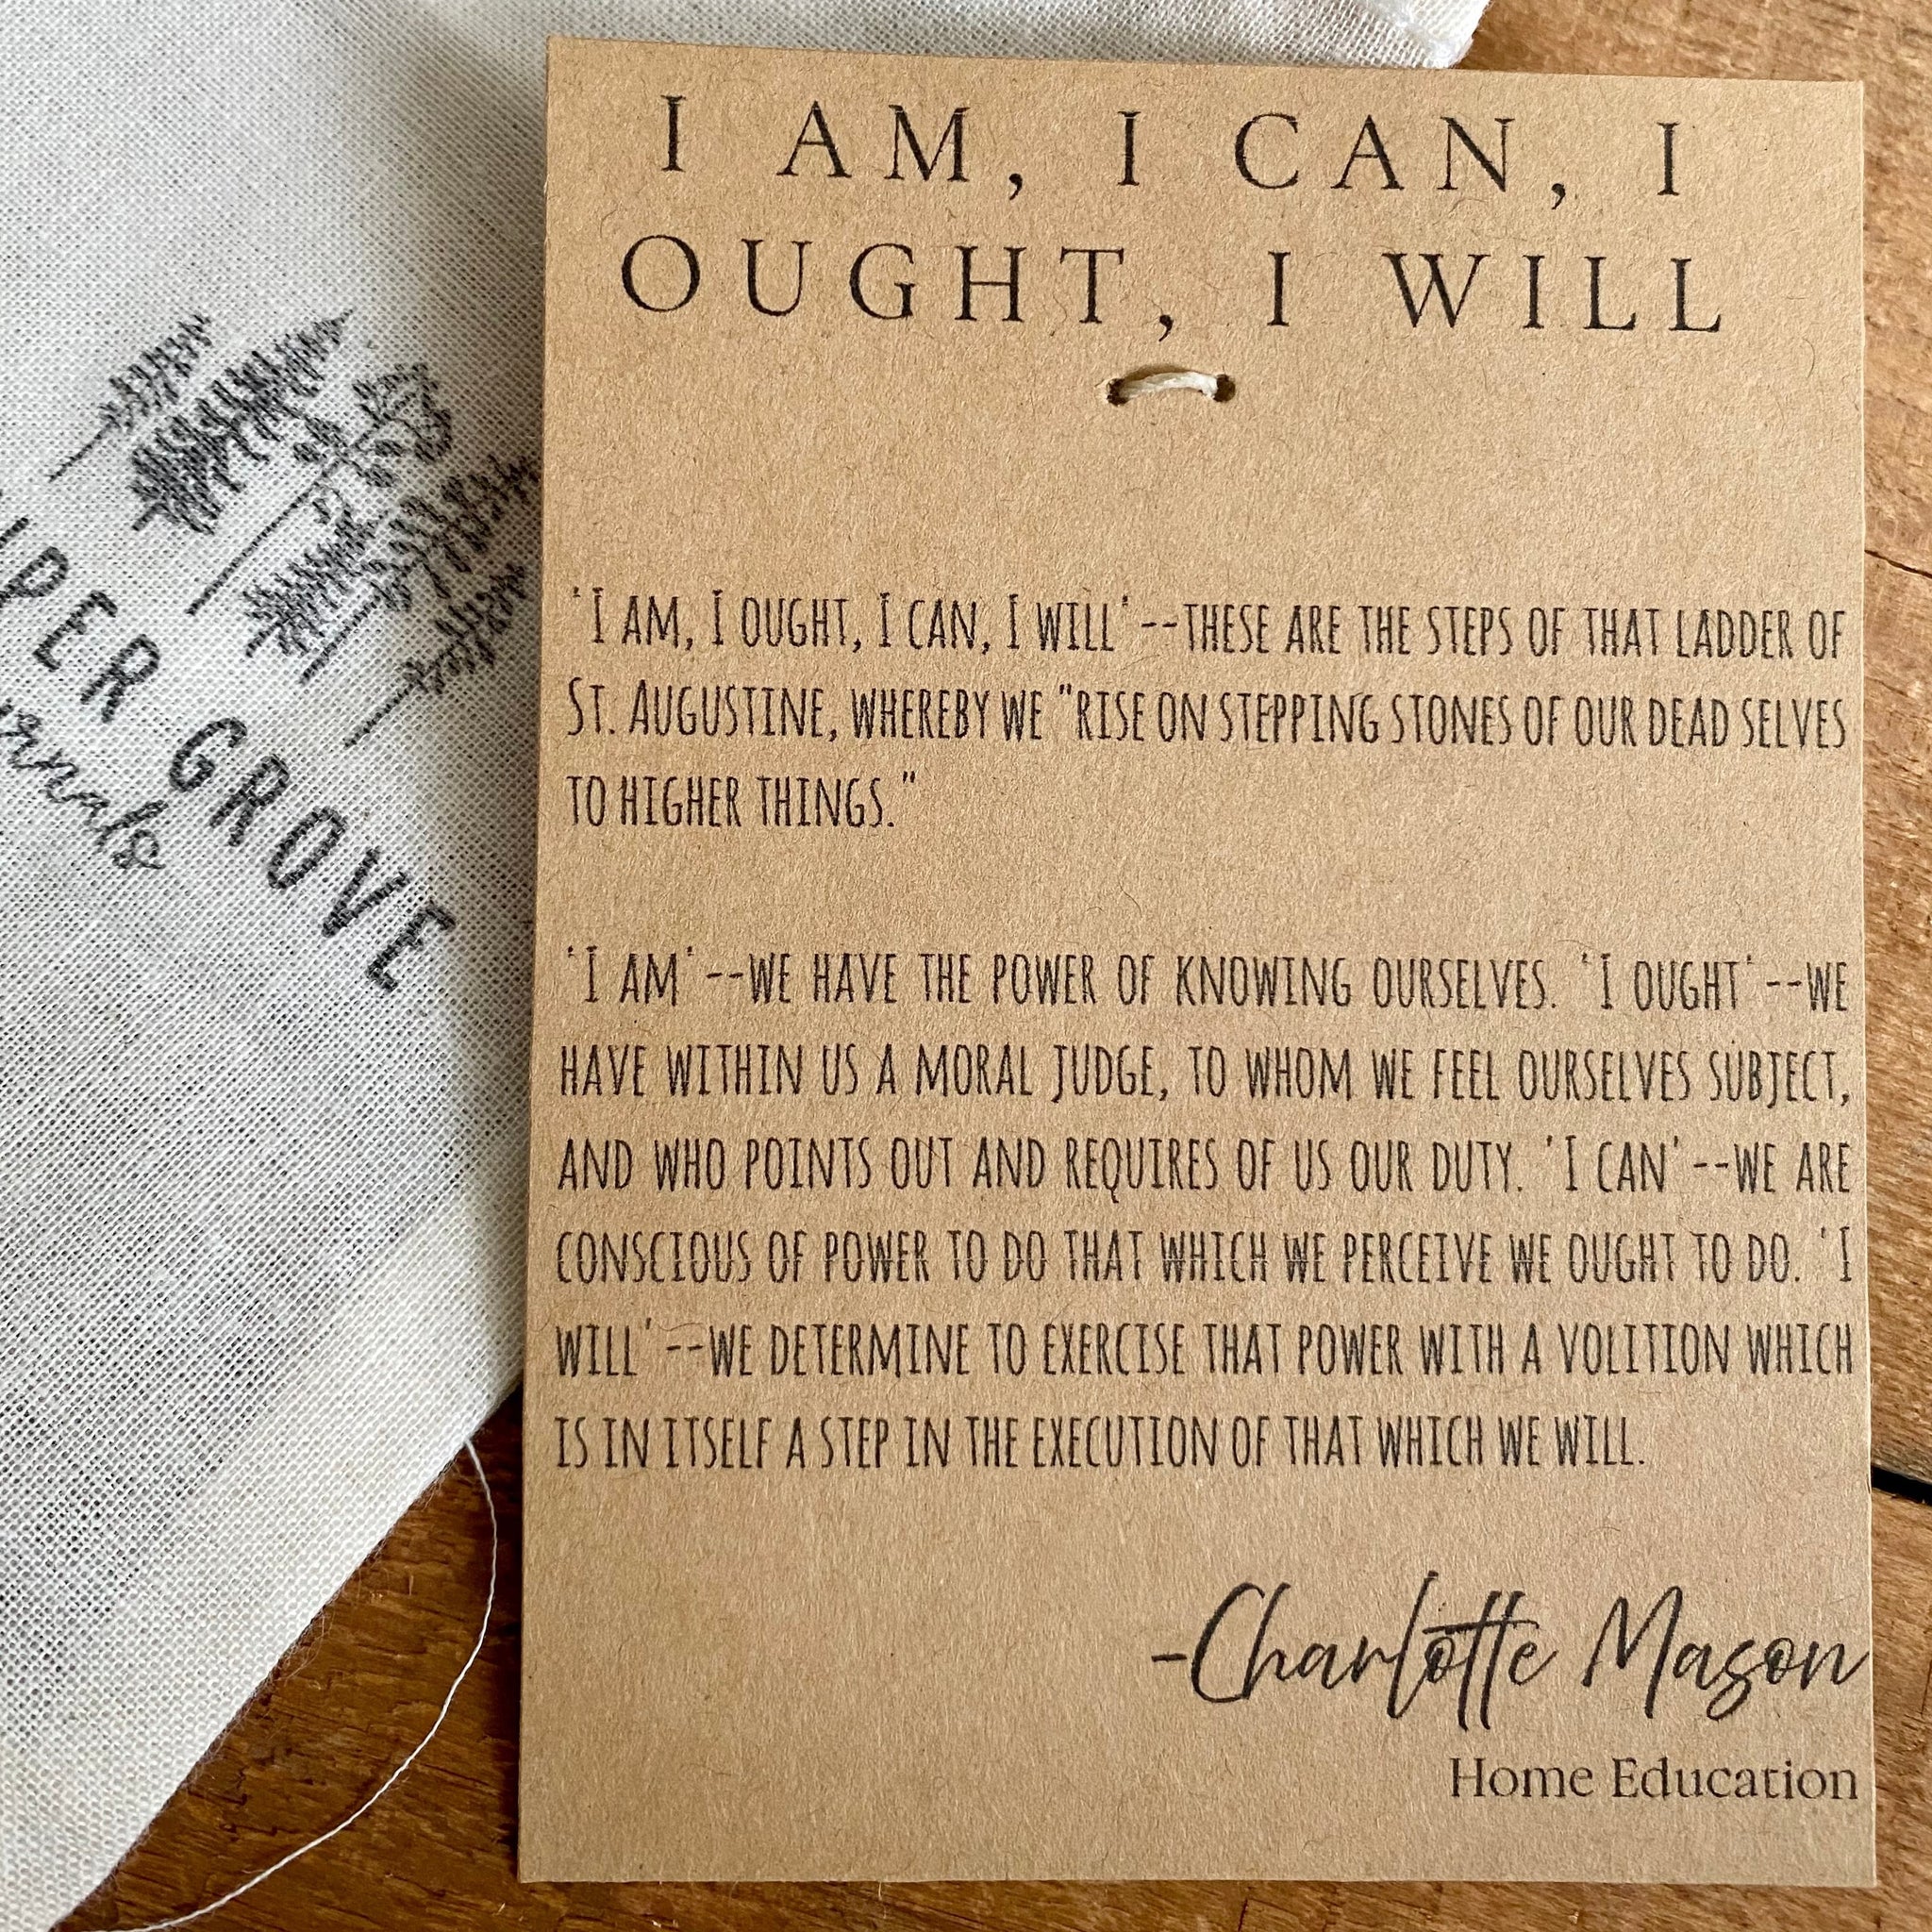 I AM, I CAN, I
OUGHT, I WILL
'I AM, I OUGHT, I CAN, I WILL'--THESE ARE THE STEPS OF THAT LADDER OF
ST. AUGUSTINE, WHEREBY WE "RISE ON STEPPING STONES OF OUR DEAD SELVES
TO HIGHER THINGS."
'I AM'--WE HAVE THE POWER OF KNOWING OURSELVES. 'I OUGHT'--WE
HAVE WITHIN US A MORAL JUDGE, TO WHOM WE FEEL OURSELVES SUBJECT,
AND WHO POINTS OUT AND REQUIRES OF US OUR DUTY. 'I CAN'--WE ARE
CONSCIOUS OF POWER TO DO THAT WHICH WE PERCEIVE WE OUGHT TO DO. 'I
WILL'--WE DETERMINE TO EXERCISE THAT POWER WITH A VOLITION WHICH
IS IN ITSELF A STEP IN THE EXECUTION OF THAT WHICH WE WILL.
-Charlotte Mason
Home Education
GROVE